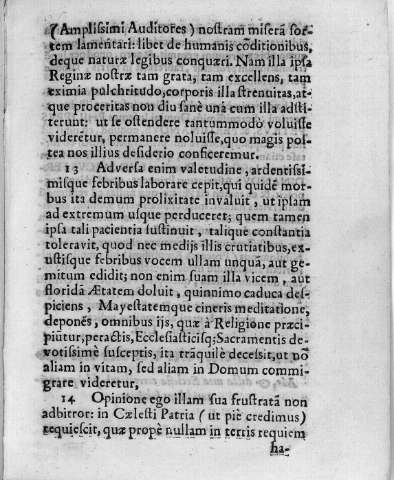 (Amplissimi Auditores) nostram miserã sor-
tem lamentari: libet de humanis cõditionibus,
deque naturæ legibus conquæri. Nam illa ipsa
Reginæ nostræ tam grata, tam excellens, tam
eximia pulchritudo, corporis illa strenuitas, at-
que proceritas non diu sanè unâ cum illa adsti-
terunt: ut se ostendere tantummodò voluisse
viderẽtur, permanere noluisse, quo magis pos-
tea nos illius desiderio conficeremur.
13 Adversa enim valetudine, ardentissi-
misque febribus laborare cepit, qui quidẽ mor-
bus ita demum prolixitate invaluit, ut ipsam
ad extremum usque perduceret; quem tamen
ipsa tali pacientia sustinuit, talique constantia
toleravit, quod nec medijs illis cruciatibus, ex-
ustisque febribus vocem ullam unquã, aut ge-
mitum edidit; non enim suam illa vicem, aut
floridã Ætatem doluit, quinnimo caduca des-
piciens, Mayestatemque cineris meditatione,
deponẽs, omnibus ijs, quæ à Religione præci-
piutur, peractis, Ecclesiasticisq; Sacramentis de-
votissimè susceptis, ita trãquilè decessit, ut nõ
aliam in vitam, sed aliam in Domum commi-
grare videretur,
14 Opinione ego illam sua frustratã non
adbitror: in Cælesti Patria (ut piè credimus)
requiescit, quæ propè nullam in terris requiem
ha-